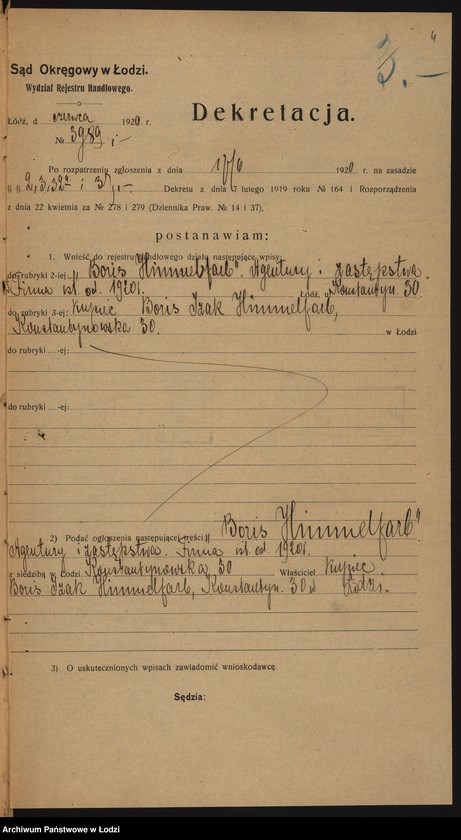 4
3.—
Sąd Okręgowy w Łodzi.
Wydział Rejestru Handlowego.
Łódź, d. czerwca 1920 r.
№ 3989
Dekretacja.
Po rozpatrzeniu zgłoszenia z dnia 1920 r. na zasadzie
§ § 2, 3, 32 i 37 Dekretu z dnia 7 lutego 1919 roku № 164 i Rozporządzenia
z dnia 22 kwietnia za № 278 i 279 (Dziennika Praw. № 14 i 37),
postanawiam:
1. Wnieść do rejestru Handlowego działu następujące wpisy
do rubryki 2-iej: „Boris Himmelfarb". Agentury i zastępstwa.
Firma ist. od. 1920 r. Łódź, Konstantyn. 30.
do rubryki 3-ej: Kupiec Boris Izak Himmelfarb,
Konstantynowska 30. w Łodzi
do rubryki -ej:
do rubryki -ej:
2) Podać ogłoszenia następującej treści: „Boris Himmelfarb"
Agentury i zastępstwa. Firma ist. od. 1920 r.
z siedzibą w Łodzi Konstantynowska 30 Właściciel Kupiec
Boris Izak Himmelfarb, Konstantyn. 30 w Łodzi.
3) O uskutecznionych wpisach zawiadomić wnioskodawcę.
Sędzia:
Archiwum Państwowe w Łodzi